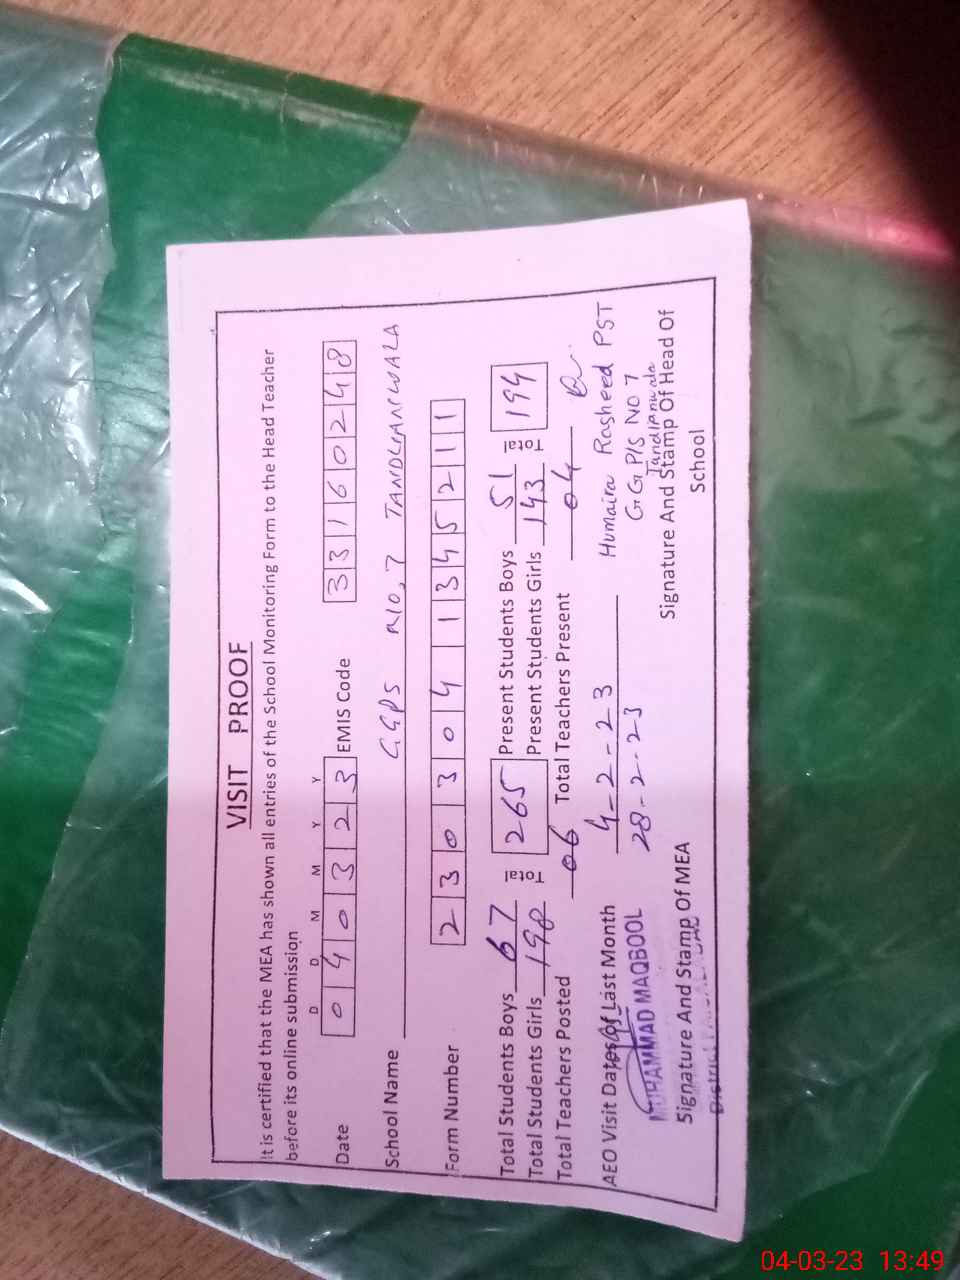 VISIT PROOF
It is certified that the MEA has shown all entries of the School Monitoring Form to the Head Teacher
before its online submission
D D M M Y Y
Date 0 4 0 3 2 3 EMIS Code 3 3 1 6 0 2 4 8
School Name GGPS NO, 7 TANDLIANWALA
Form Number 2 3 0 3 0 4 1 3 4 5 2 1 1
Total Students Boys 67 Total 265 Present Students Boys 51 Total 194
Total Students Girls 198 Total Present Students Girls 143 Total
Total Teachers Posted 06 Total Teachers Present 04
AEO Visit Dates of Last Month 4-2-23
28-2-23
Humaira Rasheed PST
GGP/S NO 7
Tandlianwala
MUHAMMAD MAQBOOL
Signature And Stamp Of MEA
Signature And Stamp Of Head Of
School
District
04-03-23 13:49